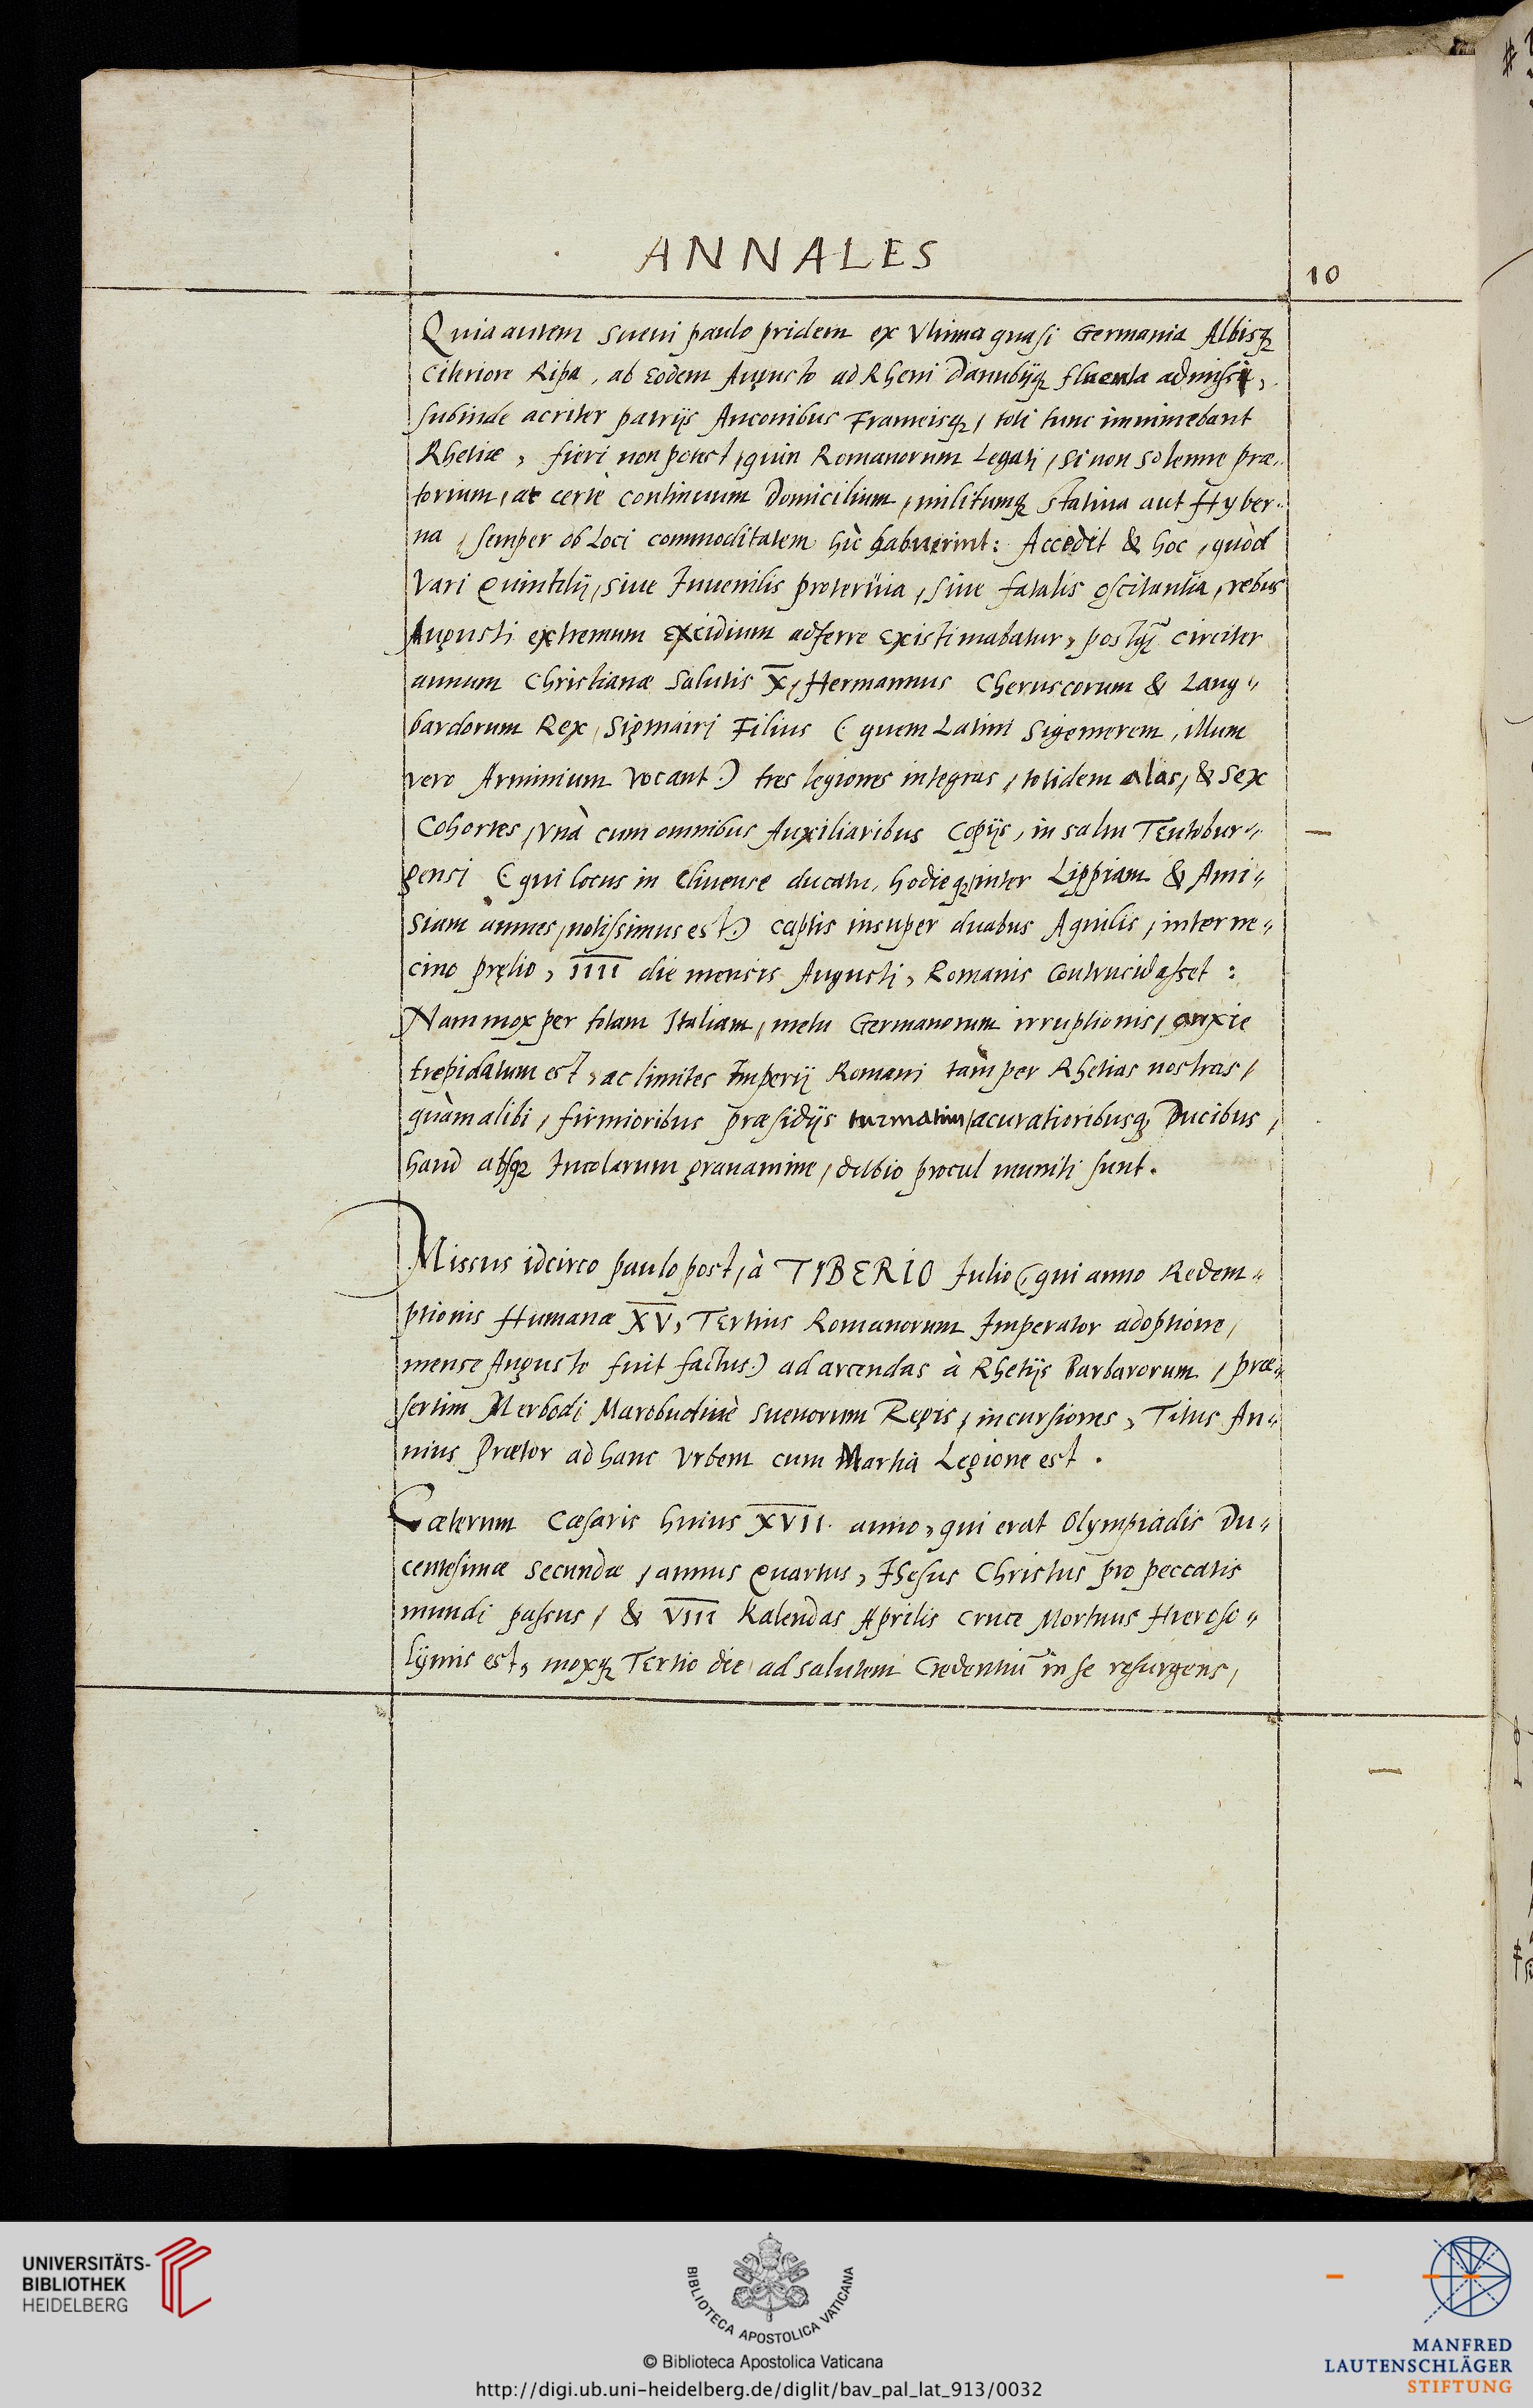 ANNALES
10
Quia autem Sueui paulo pridem ex Vltima quasi Germania Albisq́
citeriore Ripa, ab Eodem Augusto ad Rheni Danubijq́ fluenta admissi,
subinde acriter patrijs Anconibus Frameisq́, toti tunc imminebant
Rhetiæ, fieri non potest, quin Romanorum Legati, si non Solenne præ„
torium, at certè continuum Domicilium, militumq́ statiua aut Hyber„
na, semper ob Loci commoditatem hìc habuerint: Accedit & hoc, quòd
Vari Quintilij, siue Iuuenilis proteruia, siue fatalis oscitantia, rebus
Augusti extremum Excidium adferre Existimabatur, postq̃ circiter
annum Christianæ Salutis X, Hermannus Cheruscorum & Lang„
bardorum Rex, Sigmairi Filius (quem Latini Sigemerem, illum
vero Arminium vocant.) tres legiones integras, totidem alas, & Sex
Cohortes, vnà cum omnibus Auxiliaribus Copijs, in saltu Teutobur„
gensi (qui locus in Cliuense ducatu, hodieq́, inter Lippiam & Ami„
siam amnes, notissimus est.) captis insuper duabus Aquilis, interne„
cino prẹlio, IIII die mensis Augusti, Romanis Contrucidasset:
Nam mox per totam Italiam, metu Germanorum irruptionis, anxie
trepidatum est, ac limites Imperij Romani tàm per Rhetias nostras,
quàm alibi, firmioribus præsidijs turmatim, acuratioribusq́ Ducibus,
haud absq́ Incolarum grauamine, dubio procul muniti sunt.
Missus idcirco paulo post, à TIBERIO Iulio (qui anno Redem„
ptionis Humanæ XV, Tertius Romanorum Imperator adoptione,
mense Augusto fuit factus.) ad arcendas à Rhetijs Barbarorum, præ„
sertim Merbodi Marobuduiuè Sueuorum Regis, incursiones, Titus An„
nius Prætor ad hanc Vrbem cum Martia Legione est.
Cæterum Cæsaris huius XVII. anno, qui erat Olympiadis Du„
centesimæ Secundæ, annus Quartus, Ihesus Christus pro peccatis
mundi passus, & VIII Kalendas Aprilis Cruce Mortuus Hieroso„
lymis est, moxq́ Tertio die ad salutem Credentiũ in se resurgens,
UNIVERSITÄTS-
BIBLIOTHEK
HEIDELBERG
BIBLIOTECA APOSTOLICA VATICANA
© Biblioteca Apostolica Vaticana
http://digi.ub.uni-heidelberg.de/diglit/bav_pal_lat_913/0032
MANFRED
LAUTENSCHLÄGER
STIFTUNG